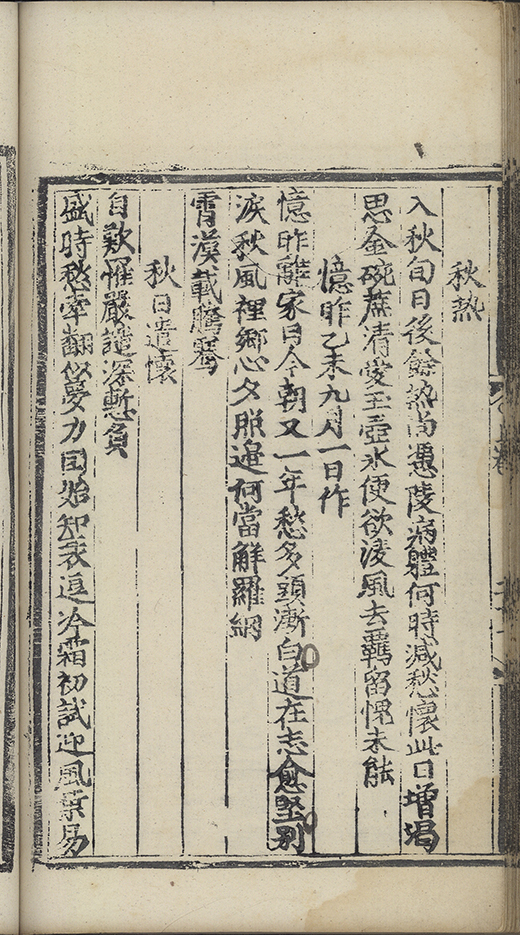 秋熱
入秋旬日後餘熱尚憑陵病體何時減愁懷此日增渴
思金碗蔗清愛玉壺氷便欲淩風去羈留愧未能
憶昨乙未九月一日作
憶昨離家日今朝又一年愁多頭漸白道在志愈堅别
淚秋風裡鄉心夕照邊何當解羅網
霄漢載騰騫
秋日遣懷
自歎罹嚴譴深慙負
盛時愁牽翻似夢力困始知衰逗冷霜初試迎風葉易
上卷